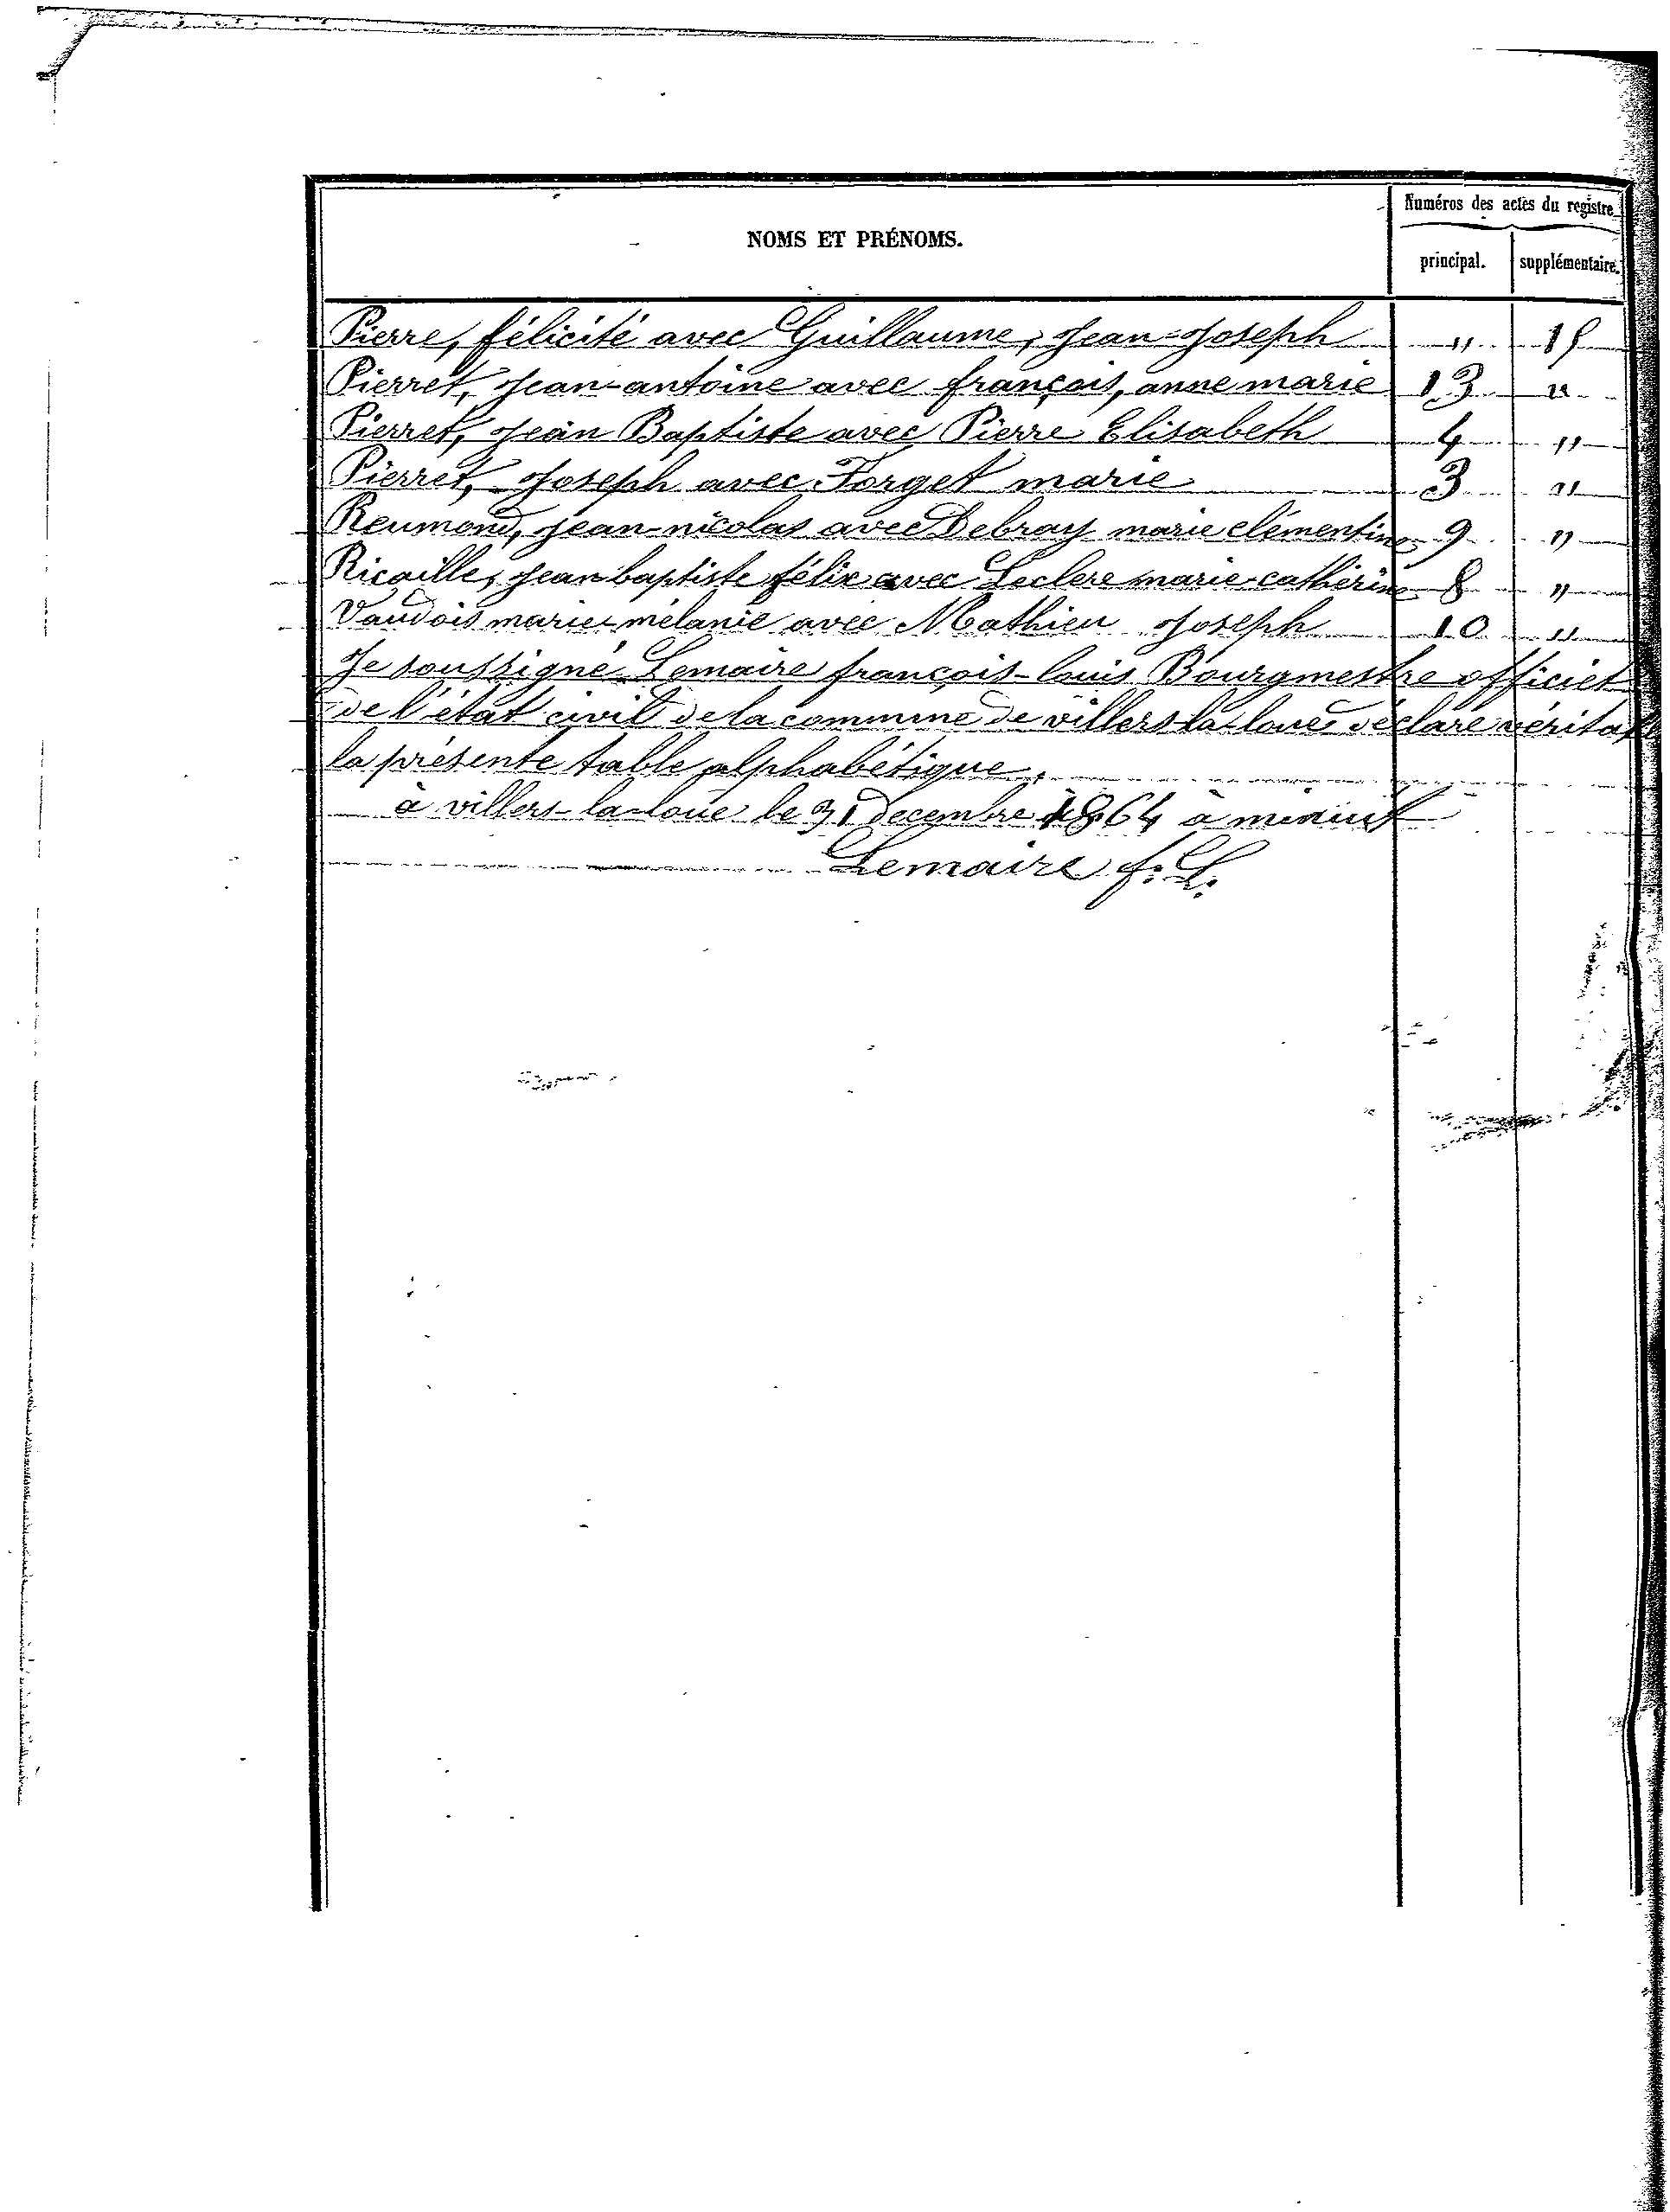 NOMS ET PRÉNOMS.
Numéros des actes du registre
principal. supplémentaire.
Pierre, félicité avec Guillaume, Jean-Joseph " 15
Pierret, Jean-antoine avec françois, anne marie 13 "
Pierret, Jean Baptiste avec Pierre Elisabeth 4 "
Pierret, Joseph avec Forget marie 3 "
Reumond, jean-nicolas avec Debray marie clémentine 9 "
Ricaille, Jean baptiste félix avec Leclere marie-cathérine 8 "
Vaudois marie-mélanie avec Mathieu Joseph 10 "
Je soussigné Lemaire françois-louis Bourgmestre officier
de l'état civil de la commune de villers-la-loue déclare véritable
la présente table alphabétique.
à villers-la-loue le 31 decembre 1864 à minuit
Lemaire f. L.